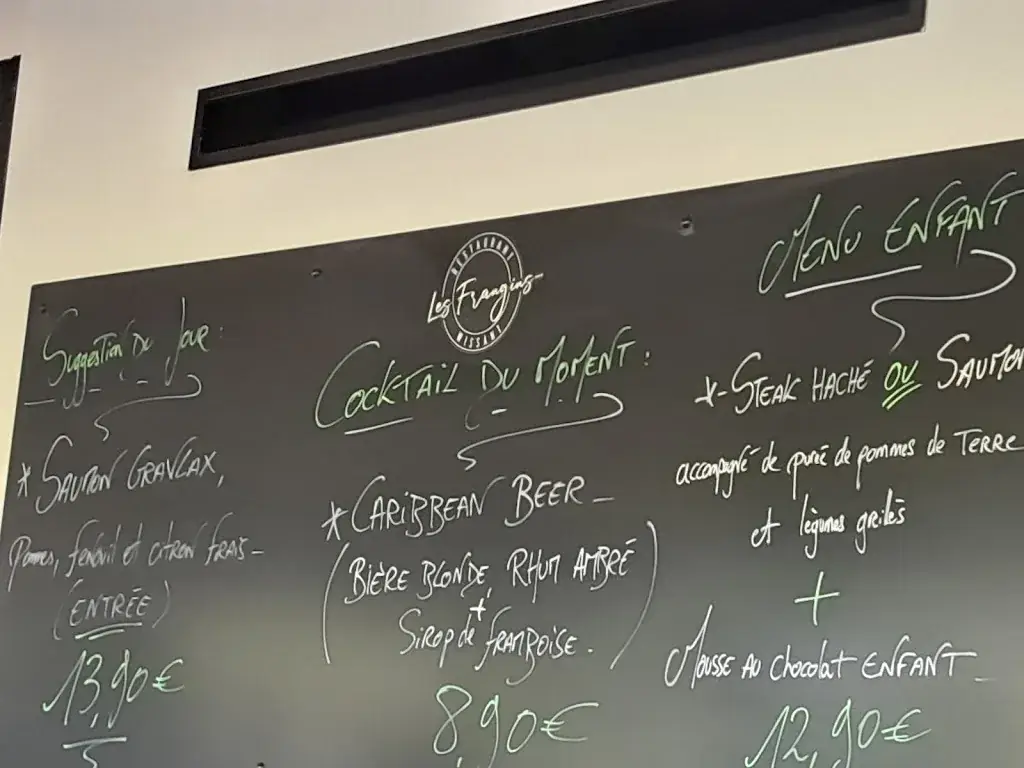 RESTAURANT
Les Frangins
WISSANT
Suggestion Du Jour :
* SAUMON GRAVLAX,
Pommes, fenouil et citron frais -
(ENTRÉE)
13,90€
COCKTAIL DU MOMENT :
* CARIBBEAN BEER -
(BIÈRE BLONDE, RHUM AMBRÉ
+
Sirop de FRAMBOISE.)
8,90€
MENU ENFANT
*- STEAK HACHÉ OU SAUMON
accompagné de purée de pommes de TERRE
et légumes grillés
+
MOUSSE AU CHOCOLAT ENFANT -
12,90€